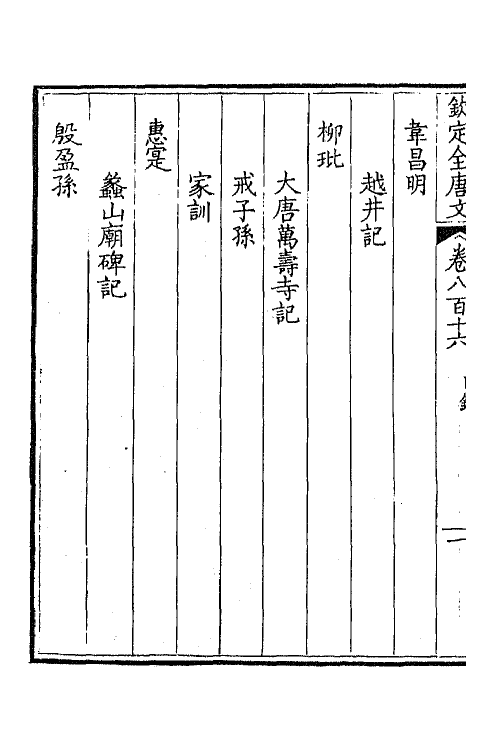 欽定全唐文 卷八百十六 目錄 一
韋昌明
越井記
柳玭
大唐萬壽寺記
戒子孫
家訓
惠寔
蠡山廟碑記
殷盈孫